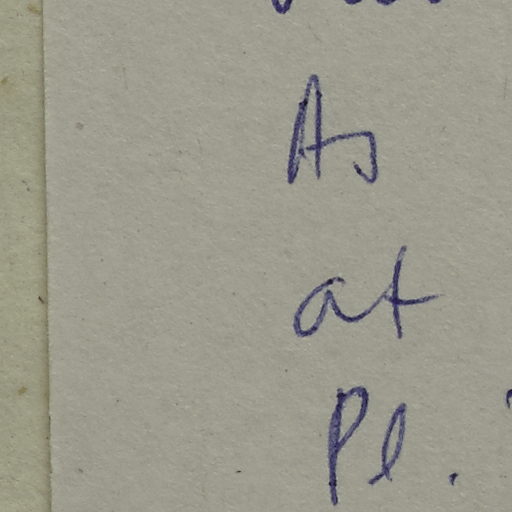 As
at
Pl.